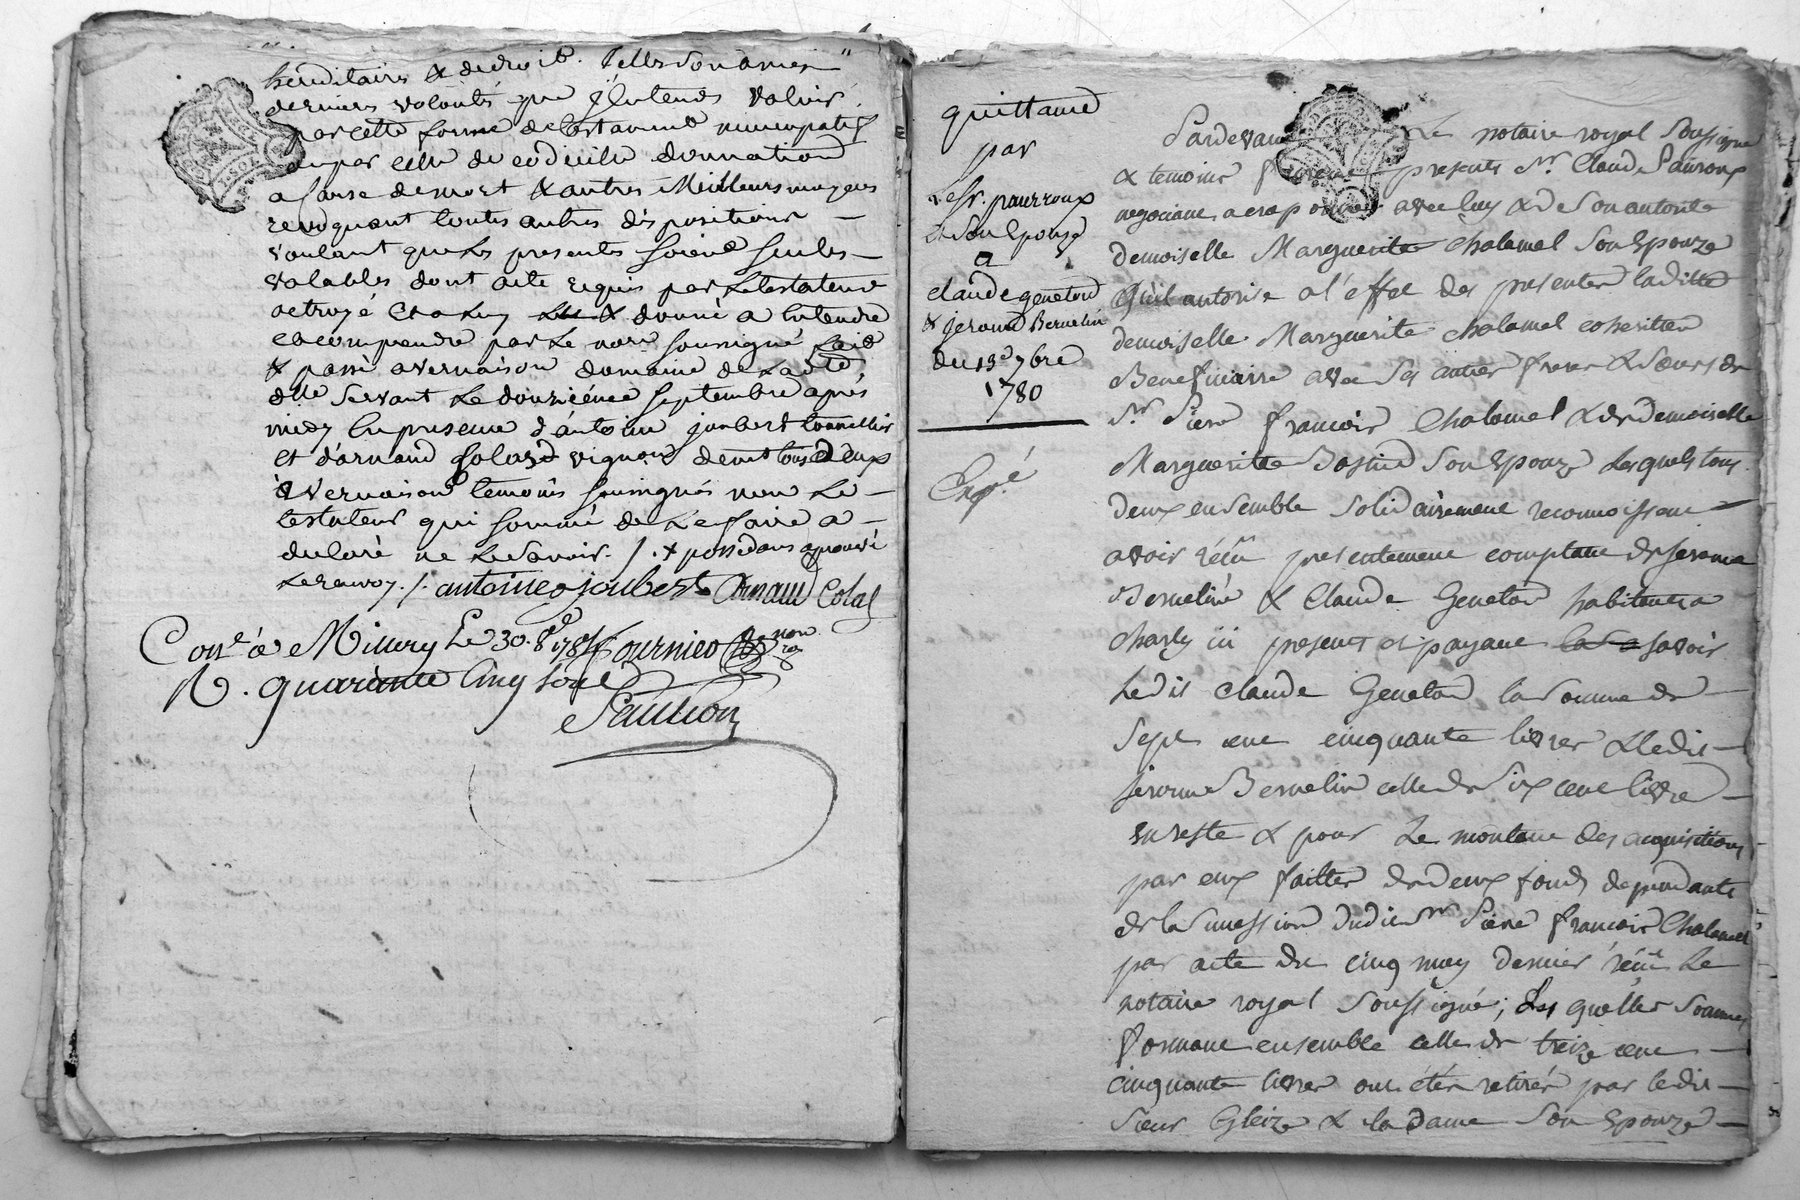 héréditaires & de droit. Telles sont mes
dernieres volontés que j'Entends valoir
par cette forme de testament nuncupatif
ou par celle de codicille donnation
a cause de mort & autres Meilleurs moyens
revoquant toutes autres dispositions —
voulant que Les presentes soient seules —
valables dont acte requis par Le testateur
octroyé Et a Luy & donné a Entendre
et comprendre par Le nore soussigné fait
& passé a vernaison domaine de
dlle Servant Le douzieme septembre après
midy En presence d'antoine joubert tonnellier
et d'arnaud Colas vigneron demt tous deux
a Vernaison temoins soussignés non Le —
testateur qui sommé de Le faire a —
declaré ne Le savoir. /. x possedans aprouvé
Le renvoy. /. antoine joubert Arnaud Colas
Con.lé à Millery Le 30. 8bre 178 fournier nore roy
R. quarante Cinq sols
Saulnon
quittance
par
Le Sr. paurroux
et Son Epouze
a
claude geneton
& jerome Bernelin
du 13e 7bre
1780
Exp.é
Pardevant Le notaire royal soussigné
& temoins furent presents Sr. Claude Paüroux
negociant avec luy & de Son autorité
demoiselle Marguerite Chalamel Son Epouze
Qu'il autorise a l'effet des presentes laditte
demoiselle Marguerite Chalamel coheritiere
Beneficiaire avec Ses autres freres & Sœurs de
Sr. Piere françois Chalamel & de demoiselle
Margueritte Son Epouze Lesquels tous
deux ensemble Solidairement reconnoissent —
avoir réçu presentement comptant de Jerome
Bernelin & Claude Geneton habitants a
charly ici present et payant savoir
Ledit Claude Geneton la Somme de —
Sept cent cinquante livres & Ledit —
Jerome Bernelin celle de Six cent livre —
en reste & pour Le montant des acquisitions
par eux faittes de deux fonds dependants
de la Succession dudit Sr Piere françois Chalamel
par acte du cinq may dernier réçu Le
notaire royal Soussigné; Les quelles Sommes
formant ensemble celle de treize cent —
cinquante livres ont étés retirés par ledit —
Sieur Gleize & la dame Son Epouze —